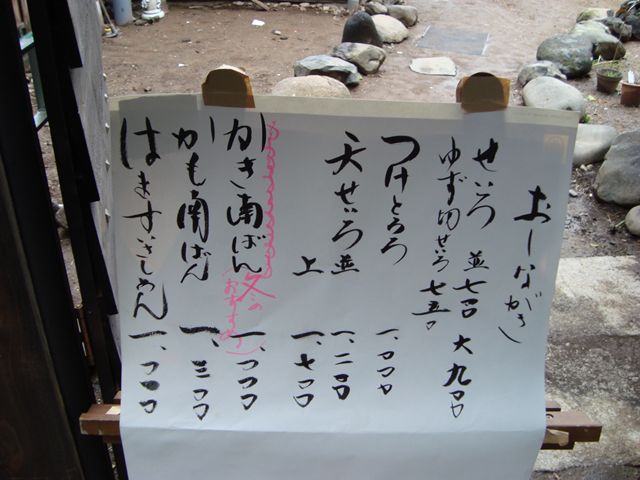 おしながき
せいろ 並 七〇〇 大 九〇〇
ゆず切せいろ 七五〇
つけとろろ 一、〇〇〇
天せいろ 並 一、二〇〇
上 一、七〇〇
かき南ばん 一、〇〇〇
(冬のおすすめ)
かも南ばん 一、三〇〇
はますいきしめん 一、〇〇〇